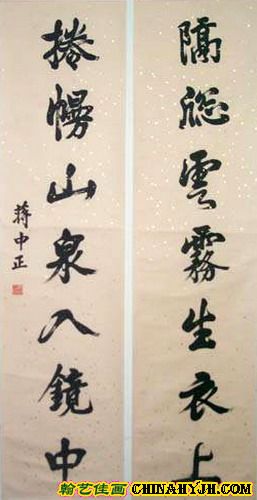 隔窓雲霧生衣上
捲幔山泉入鏡中
蔣中正
翰艺佳画 CHINAHYJH.COM